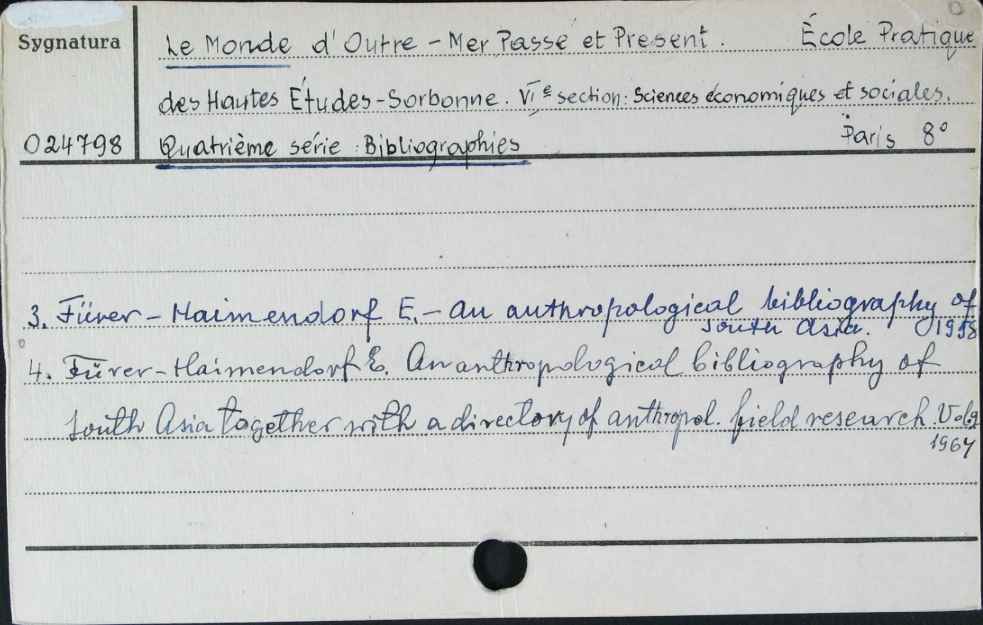 Sygnatura
Le Monde d'Outre-Mer Passé et Present. École Pratique
des Hautes Études-Sorbonne. VIe section: Sciences économiques et sociales.
024798 Quatrième série: Bibliographies Paris 8°
3. Fürer-Haimendorf E.- An anthropological bibliography of
South Asia. 1958
4. Fürer-Haimendorf E. An anthropological bibliography of
South Asia together with a directory of anthropol. field research.
1964